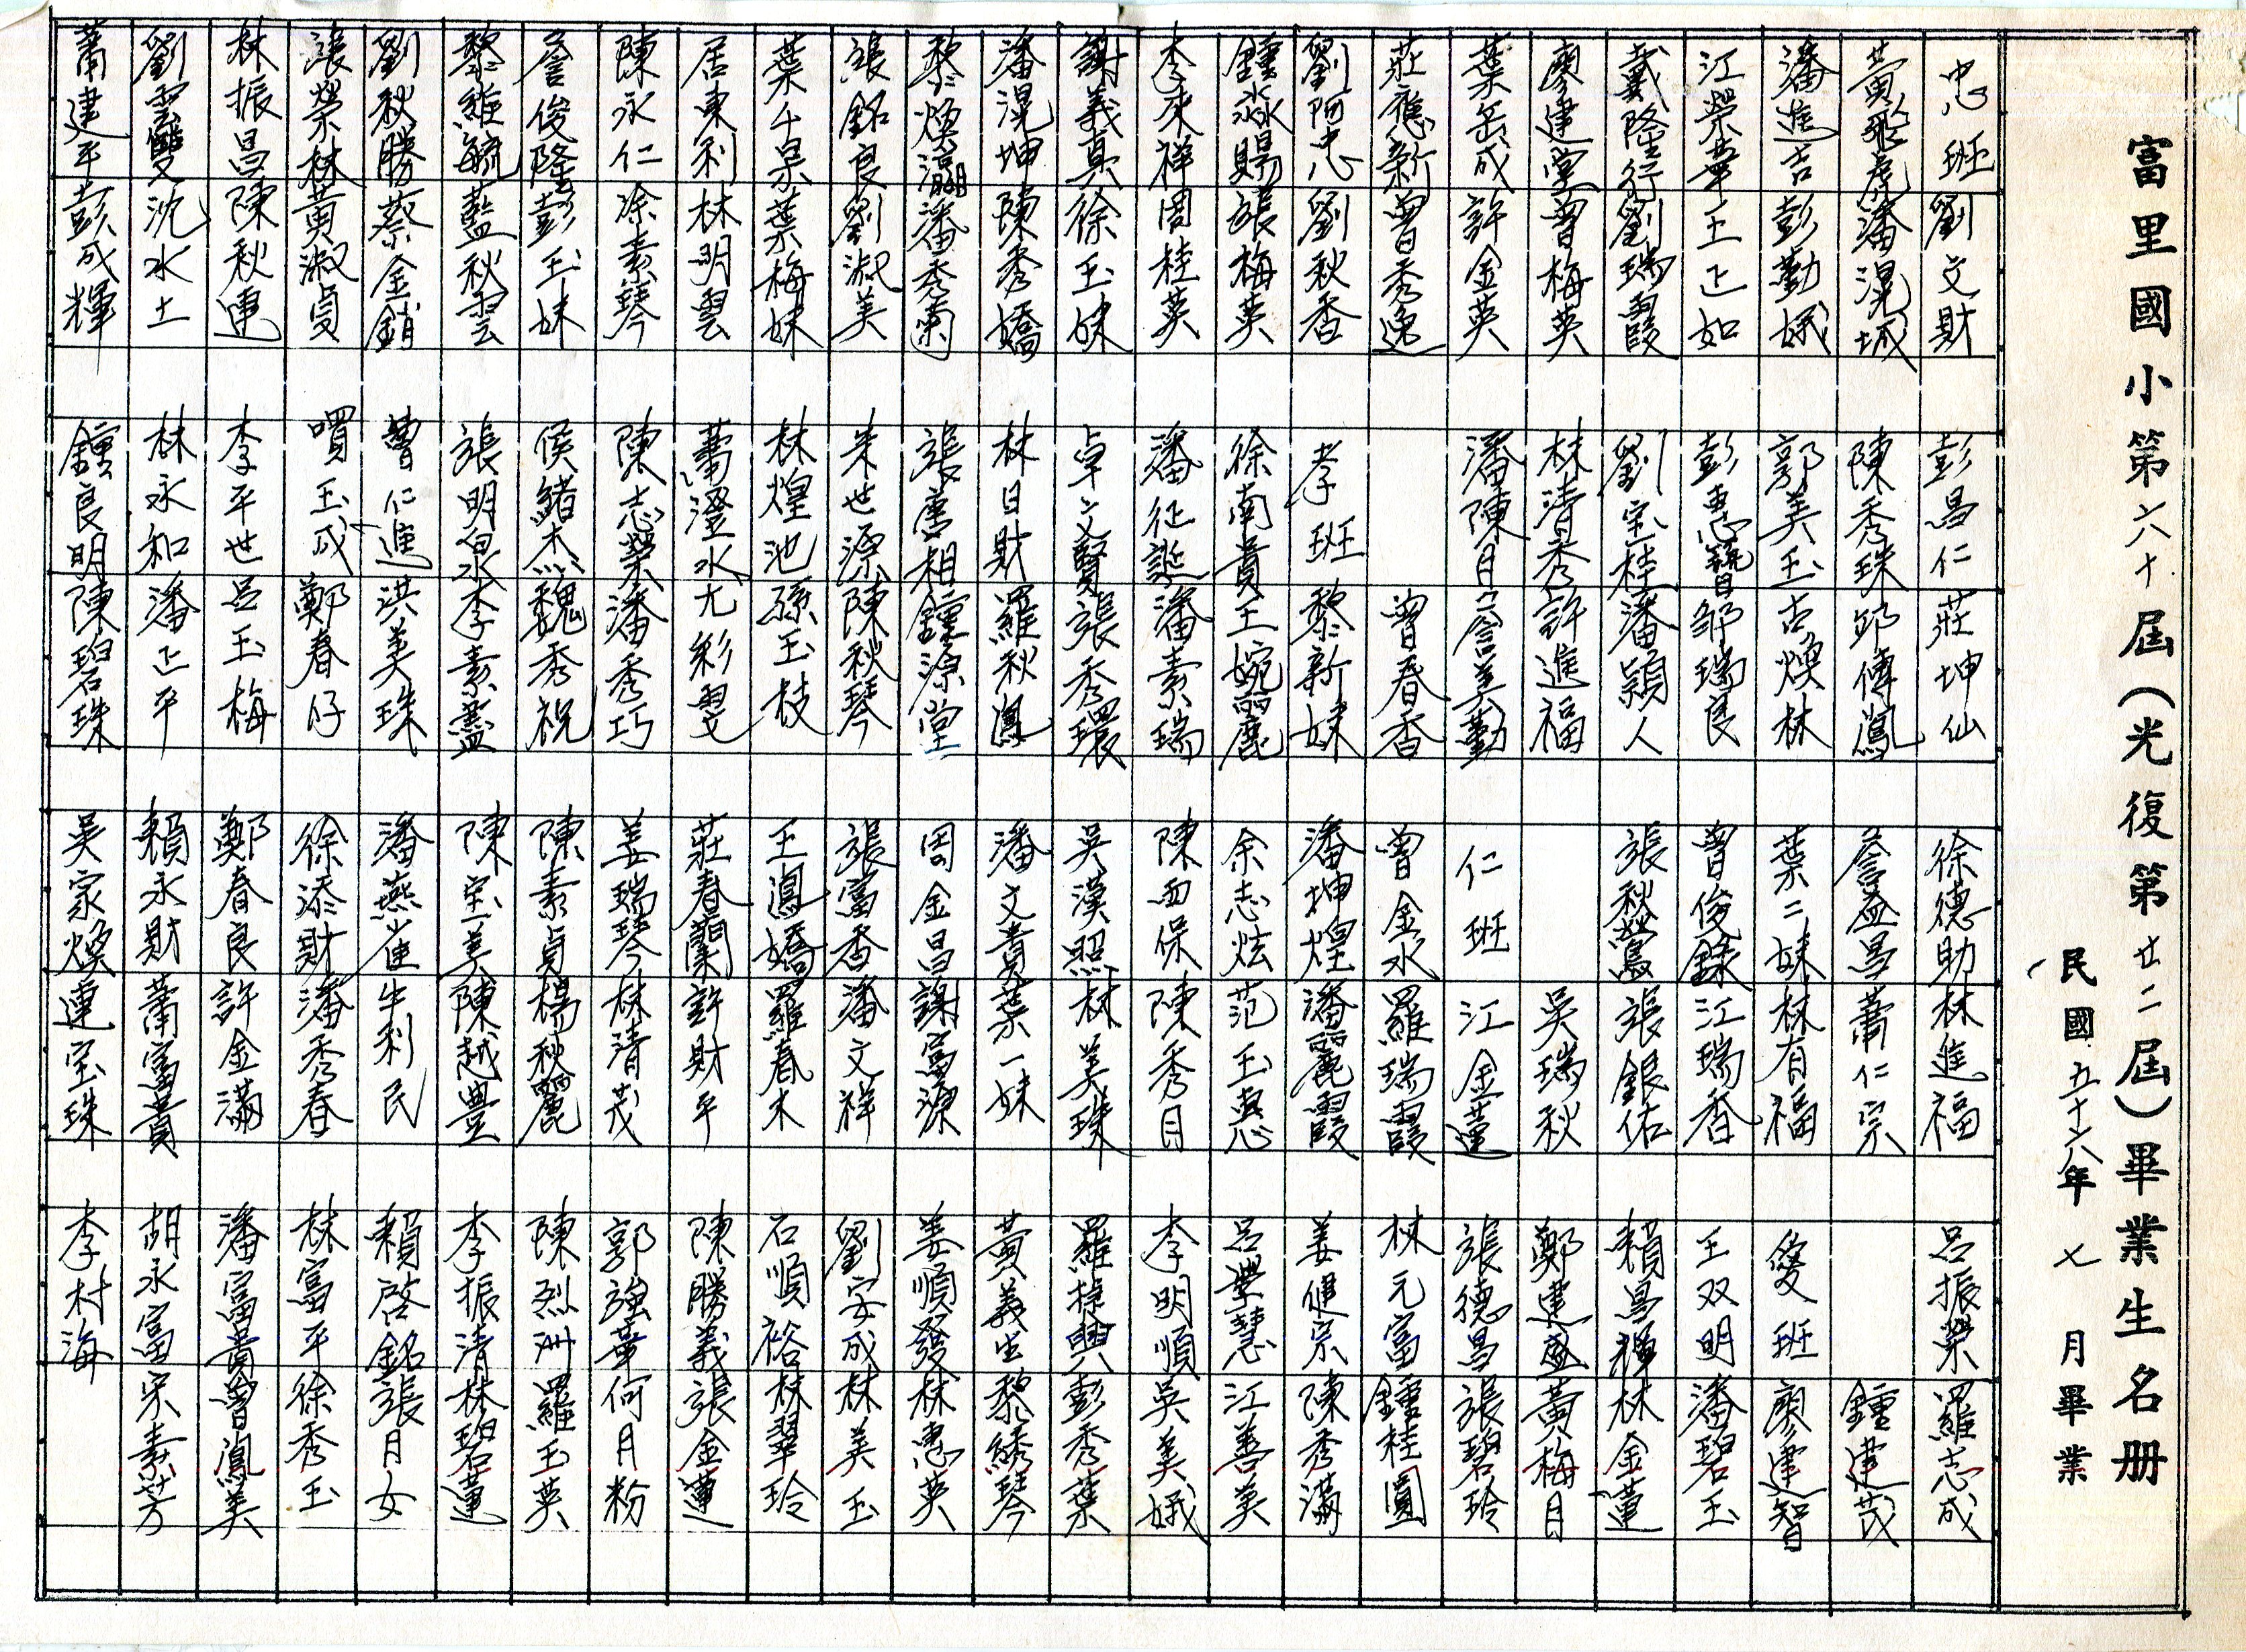 富里國小第六十屆(光復第廿二屆)畢業生名册
民國五十六年七月畢業
忠班 劉文財
黃飛虎 潘滉城
潘進吉 彭勤娥
江榮華 王正如
戴隆行 劉瑞霞
廖建堂 曾梅英
葉岳成 許金英
莊應新 曾秀逸
劉阿忠 劉秋香
鍾淼賜 張梅英
李來祥 周桂英
謝義真 徐玉妹
潘滉坤 陳秀嬌
黎煥瀛 潘秀菊
張銘良 劉淑美
葉千杲 葉梅妹
居東利 林明雲
陳永仁 涂素琴
詹俊隆 彭玉妹
黎維毓 藍秋雲
劉秋勝 蔡金銷
張榮林 黃淑貞
林振昌 陳秋連
劉雲雙 沈水土
蕭建平 彭成輝
彭昌仁 莊坤仙
陳秀珠 邱傅鳳
郭美玉 古煥林
彭惠簪 鄒瑞良
劉宝桂 潘穎人
林清秀 許進福
潘陳月 詹美勤
曾春香
孝班 黎新妹
徐南貴 王婉麗
潘征誕 潘素瑞
卓文賢 張秀環
林日財 羅秋鳳
張唐相 鐘源堂
朱世源 陳秋琴
林煌池 孫玉枝
蕭澄水 尤彩雯
陳志榮 潘秀巧
侯緒杰 魏秀祝
張明泉 李素蓋
曹仁進 洪美珠
玉成 鄭春仔
李平世 呂玉梅
林永和 潘正平
鐘良明 陳碧珠
徐德助 林進福
詹益昌 蕭仁宗
葉二妹 林有福
曾俊錄 江瑞香
張秋鶯 張銀佑
吳瑞秋
仁班 江金蓮
曾金水 羅瑞霞
潘坤煌 潘麗霞
余志炫 范玉惠
陳西保 陳秀月
吳漢照 林美珠
潘文貴 葉一妹
周金昌 謝富源
張富香 潘文祥
王鳳嬌 羅春木
莊春蘭 許財平
姜瑞琴 林清茂
陳素貞 楊秋麗
陳宝美 陳越豊
潘燕雀 牛利民
徐添財 潘秀春
鄭春良 許金滿
賴永財 蕭富貴
吳家煥 連宝珠
呂振榮 羅志成
鍾建茂
愛班 廖建智
王双明 潘碧玉
賴昌輝 林金蓮
鄭建盛 黃梅月
張德昌 張碧玲
林元富 鍾桂圓
姜健宗 陳秀滿
呂學慧 江善美
李明順 吳美娥
羅操興 彭秀葉
黃義生 黎綉琴
姜順發 林惠英
劉安成 林美玉
石順裕 林翠玲
陳勝義 張金蓮
郭強華 何月粉
陳烈洲 羅玉英
李振清 林碧蓮
賴啓銘 張月女
林富平 徐秀玉
潘富貴 曾鳳美
胡永富 宋素芳
李村海